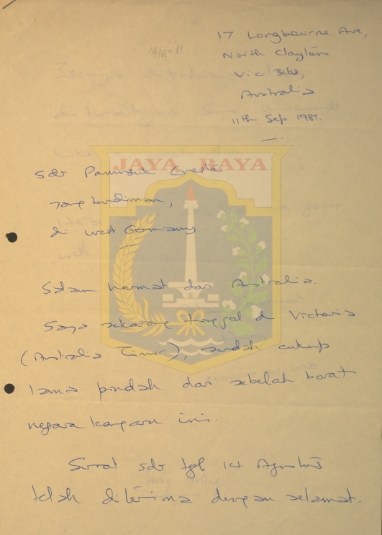 17 Longbourne Ave,
North Clayton
Vic 3168,
Australia
11th Sep 1981.
JAYA RAYA
Sdr
yang budiman,
di West Germany
Salam hormat dari Australia.
Saya sekarang tinggal di Victoria
(Australia Timur), sudah cukup
lama pindah dari sebelah barat
negara kangaru ini.
Surat sdr tgl 14 Agustus
telah diterima dengan selamat.